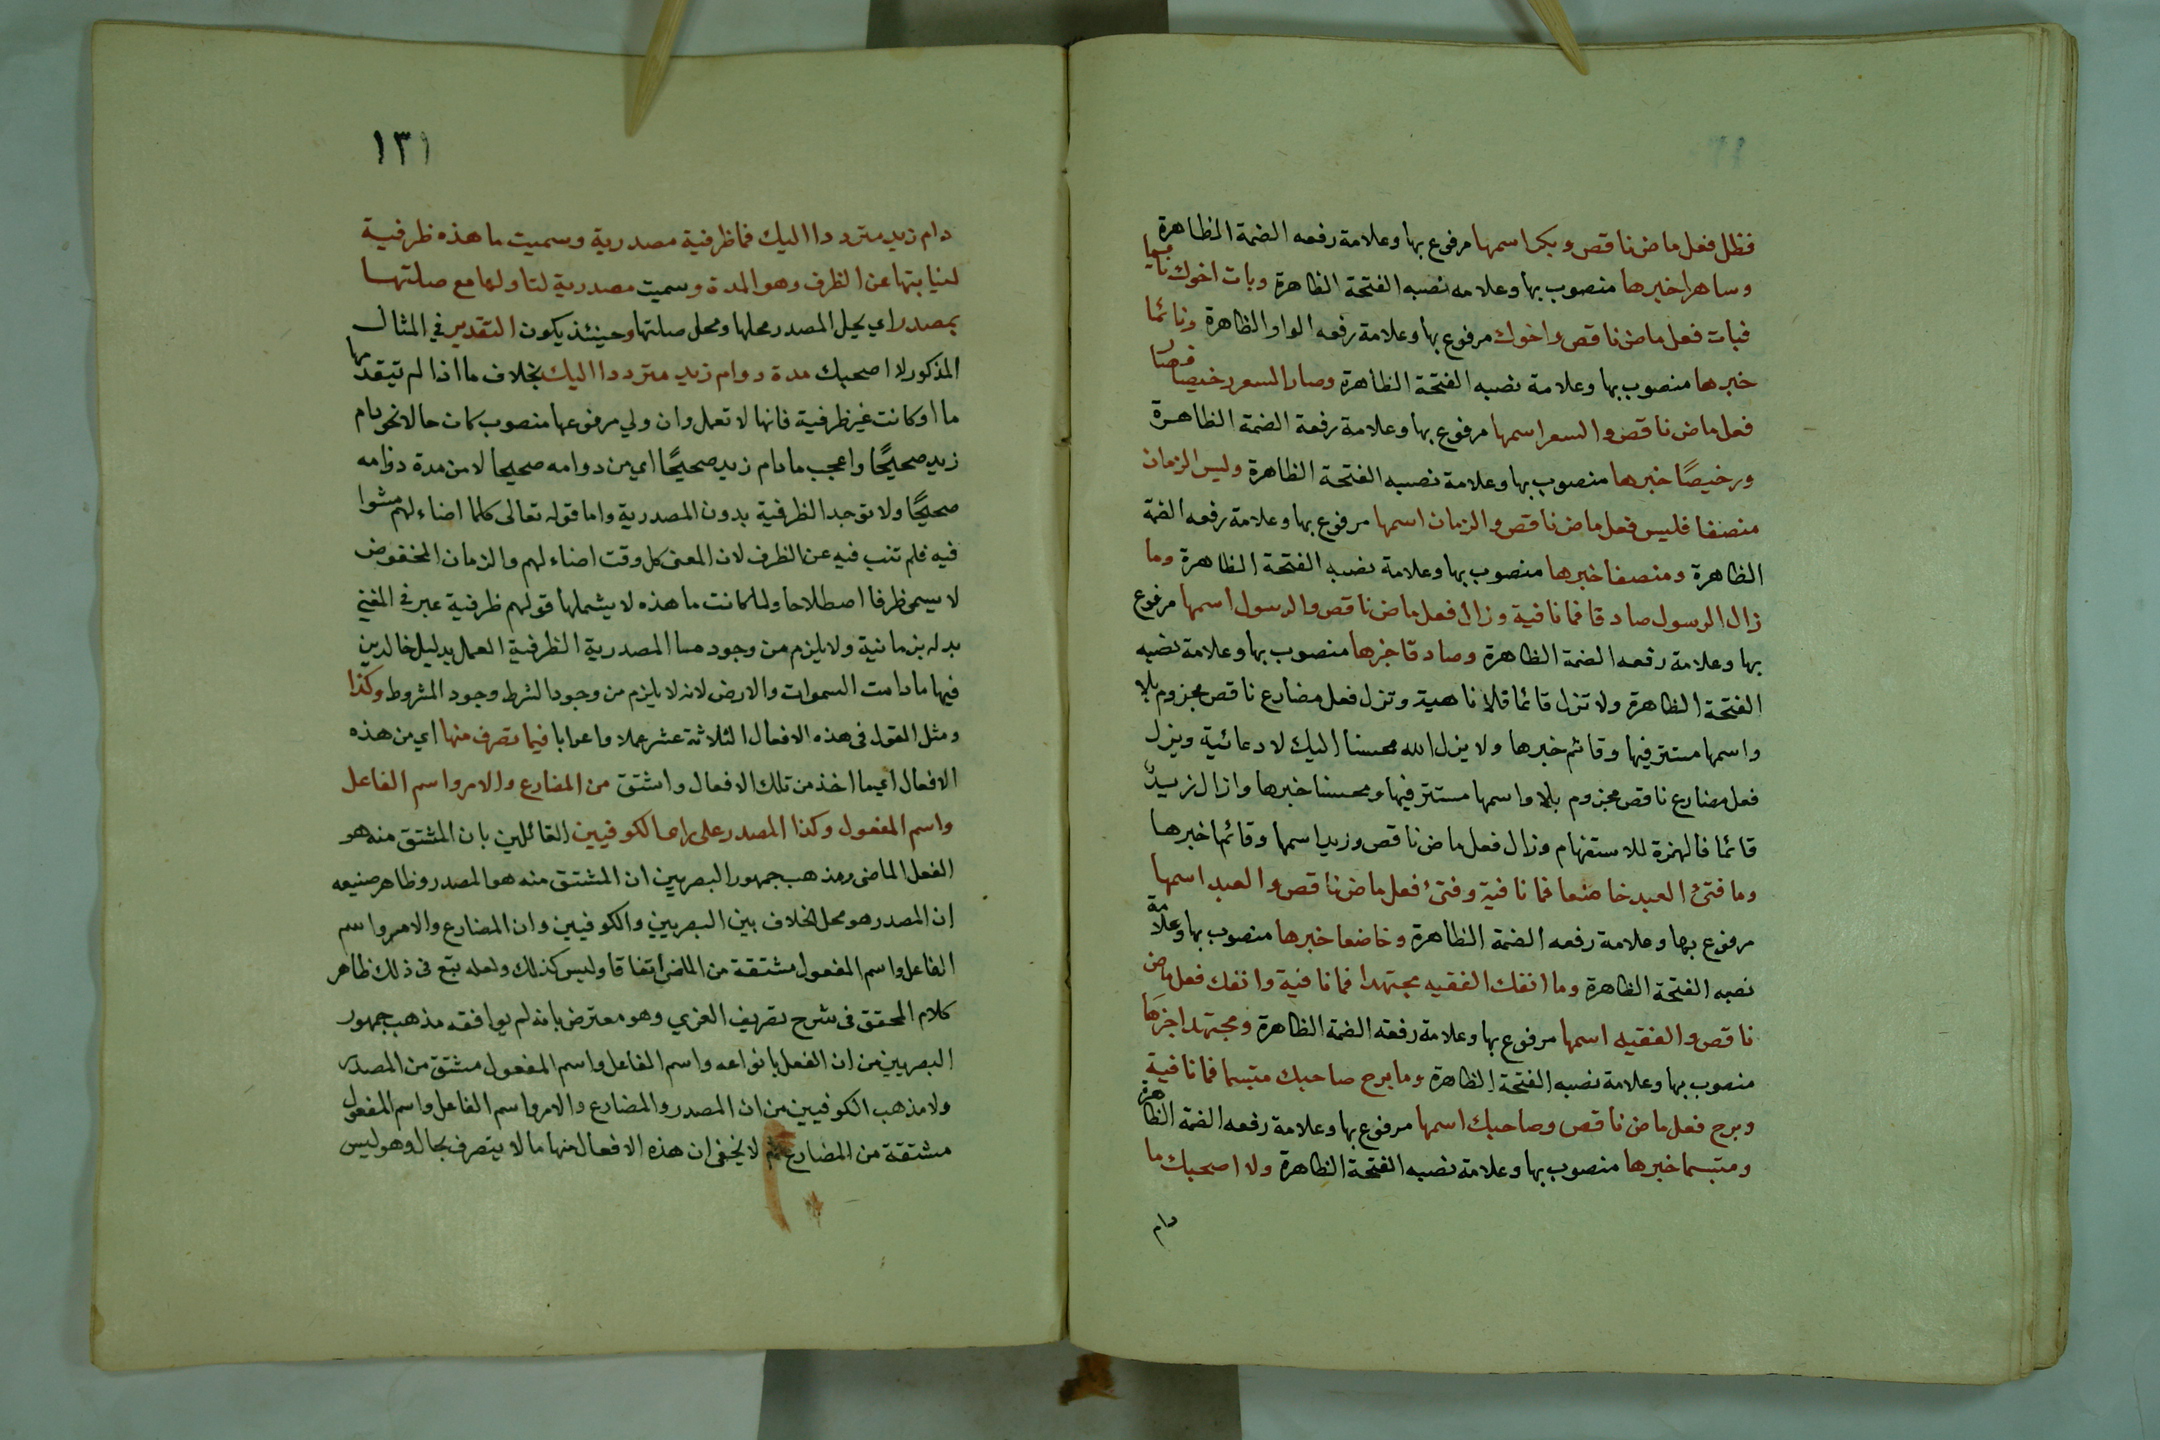 فظل فعل ماض ناقص وبكر اسمها مرفوع بها وعلامة رفعه الضمة الظاهرة
وساهرا خبرها منصوب بها وعلامه نصبه الفتحة الظاهرة وبات اخوك نائما
فبات فعل ماض ناقص واخوك مرفوع بها وعلامة رفعه الواو الظاهرة ونائما
خبرها منصوب بها وعلامة نصبه الفتحة الظاهرة وصار السعر رخيصا فصار
فعل ماض ناقص والسعر اسمها مرفوع بها وعلامة رفعة الضمة الظاهرة
ورخيصًا خبرها منصوب بها وعلامة نصبه الفتحة الظاهرة وليس الزمان
منصفا فليس فعل ماض ناقص والزمان اسمها مرفوع بها وعلامة رفعه الضمة
الظاهرة ومنصفا خبرها منصوب بها وعلامة نصبه الفتحة الظاهرة وما
زال الرسول صادقا فما نافية وزال فعل ماض ناقص والرسول اسمها مرفوع
بها وعلامة رفعه الضمة الظاهرة وصادقا خبرها منصوب بها وعلامة نصبه
الفتحة الظاهرة ولا تزل قائما فلا ناهية وتزل فعل مضارع ناقص مجزوم بلا
واسمها مستتر فيها وقائم خبرها ولا يزل الله محسنا اليك لا دعائية ويزل
فعل مضارع ناقص مجزوم بلا واسمها مستتر فيها ومحسنا خبرها وازال زيدٌ
قائما فالهمزة للاستفهام وزال فعل ماض ناقص وزيد اسمها وقائما خبرها
وما فتئ العبد خاضعا فما نافية وفتئ فعل ماض ناقص والعبد اسمها
مرفوع بها وعلامة رفعه الضمة الظاهرة وخاضعا خبرها منصوب بها وعلامة
نصبه الفتحة الظاهرة وما انفك الفقيه مجتهدا فما نافية وانفك فعل ماض
ناقص والفقيه اسمها مرفوع بها وعلامة رفعه الضمة الظاهرة ومجتهدا خبرها
منصوب بها وعلامة نصبه الفتحة الظاهرة وما برح صاحبك متبسما فما نافية
وبرح فعل ماض ناقص وصاحبك اسمها مرفوع بها وعلامة رفعه الضمة الظاهرة
ومتبسما خبرها منصوب بها وعلامة نصبه الفتحة الظاهرة ولا اصحبك ما
دام
١٣١
دام زيد مترددا اليك فما ظرفية مصدرية وسميت ما هذه ظرفية
لنيابتها عن الظرف وهو المدة وسميت مصدرية لتاولها مع صلتها
بمصدر اي يحل المصدر محلها ومحل صلتها وحينئذ يكون التقدير في المثال
المذكور لا اصحبك مدة دوام زيد مترددا اليك بخلاف ما اذا لم تتقدمها
ما او كانت غير ظرفية فانها لا تعمل وان ولي مرفوعها منصوب كان حالا نحو دام
زيد صحيحًا واعجب ما دام زيد صحيحًا اي من دوامه صحيحا لا من مدة دوامه
صحيحًا ولا توجد الظرفية بدون المصدرية واما قوله تعالى كلما اضاء لهم مشوا
فيه فلم تنب فيه عن الظرف لان المعنى كل وقت اضاء لهم والزمان المخفوض
لا يسمى ظرفا اصطلاحا ولما كانت ما هذه لا يشملها قولهم ظرفية عبر في المغني
بدله بزمانية ولا يلزم من وجود ما المصدرية الظرفية العمل بدليل خالدين
فيها ما دامت السموات والارض لانه لا يلزم من وجود الشرط وجود المشروط وكذا
ومثل القول في هذه الافعال الثلاثة عشر عملا واعرابا فيما تصرف منها اي من هذه
الافعال اي ما اخذ من تلك الافعال واشتق من المضارع والامر واسم الفاعل
واسم المفعول وكذا المصدر على راي الكوفيين القائلين بان المشتق منه هو
الفعل الماضي ومذهب جمهور البصريين ان المشتق منه هو المصدر وظاهر صنيعه
ان المصدر هو محل الخلاف بين البصريين والكوفيين وان المضارع والامر واسم
الفاعل واسم المفعول مشتقة من الماضي اتفاقا وليس كذلك ولعله تبع في ذلك ظاهر
كلام المحقق في شرح تصريف العزي وهو معترض بانه لم يوافقه مذهب جمهور
البصريين من ان الفعل بانواعه واسم الفاعل واسم المفعول مشتق من المصدر
ولا مذهب الكوفيين من ان المصدر والمضارع والامر واسم الفاعل واسم المفعول
مشتقة من المضارع ثم لا يخفى ان هذه الافعال منها ما لا يتصرف بحال وهو ليس